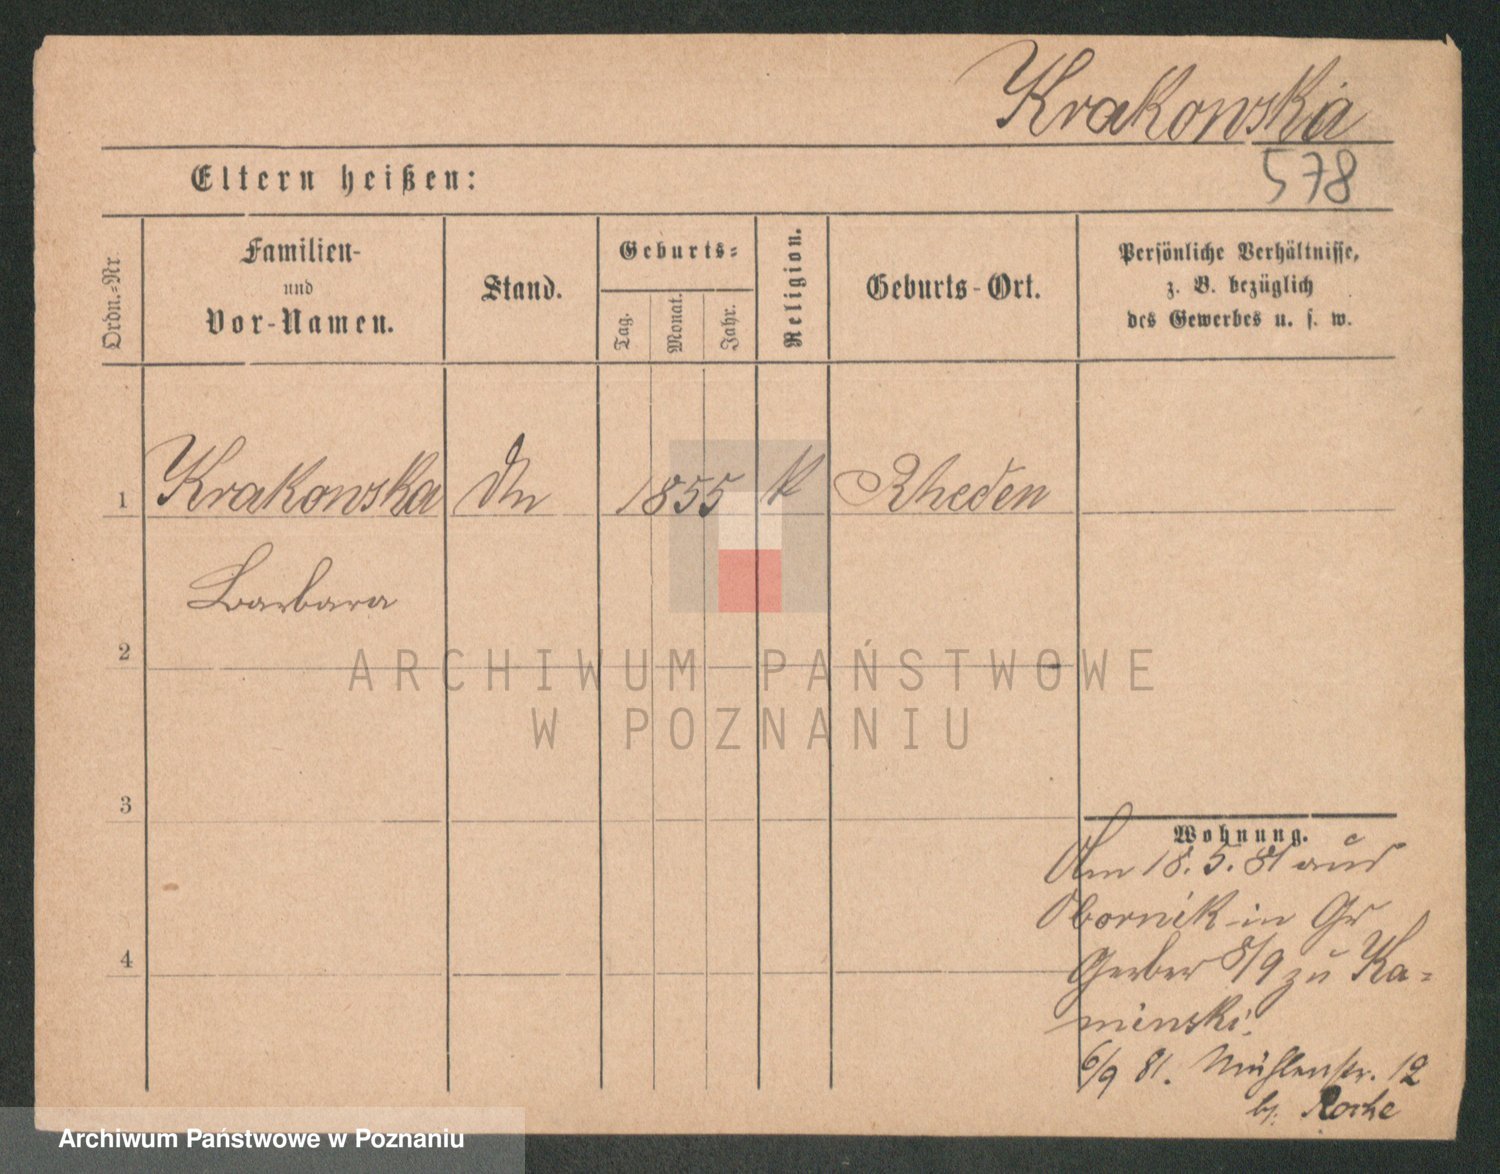 Krakowska
578
Eltern heißen:
Ordn.-Nr
Familien-
und
Vor-Namen.
Stand.
Geburts-
Tag.
Monat.
Jahr.
Religion.
Geburts-Ort.
Persönliche Verhältnisse,
z. B. bezüglich
des Gewerbes u. s. w.
1 Krakowska 1855 K Rheden
Barbara
2
ARCHIWUM PAŃSTWOWE
W POZNANIU
3
Wohnung.
Am 18.5.81 aus
Obornik in Gr
4
Gerber 8/9 zu Ka-
minski.
6/9 81. Mühlenstr. 12
b. Roche
Archiwum Państwowe w Poznaniu